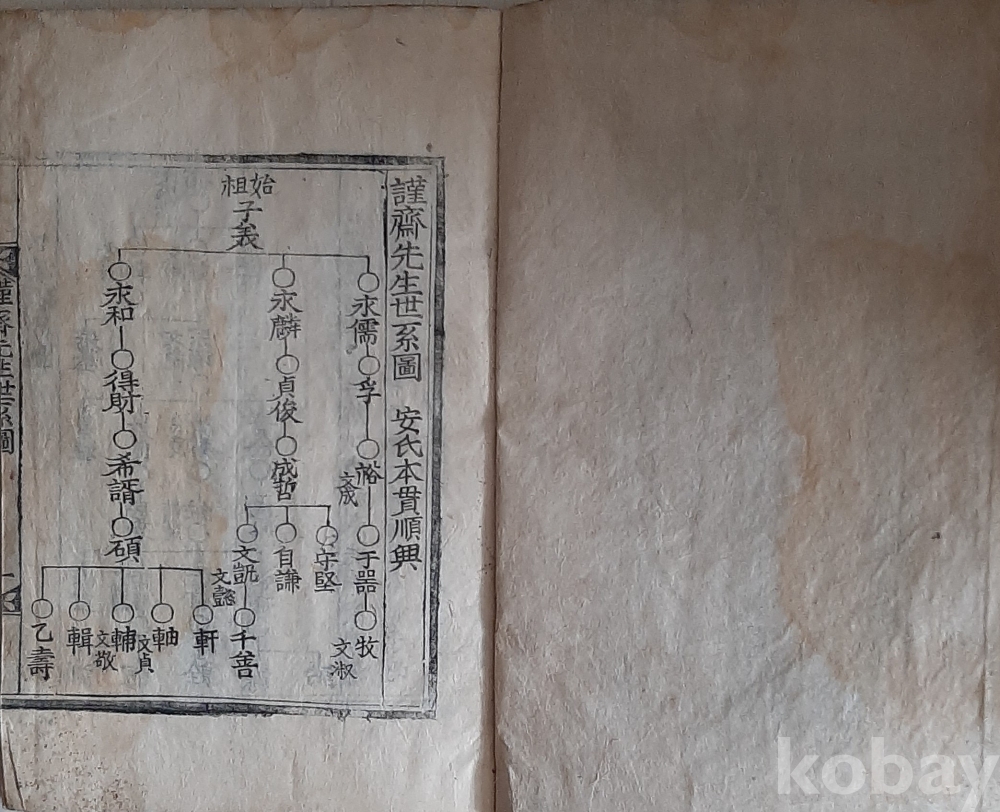 謹齋先生世系圖 安氏本貫順興
始祖
子美
永儒
孚
裕
文成
于器
牧
文淑
永麟
貞俊
成哲
守堅
自謙
文凱
文懿
千善
永和
得財
希諝
碩
軒
軸
文貞
輔
文敬
輯
乙壽
謹齋先生世系圖
kobay